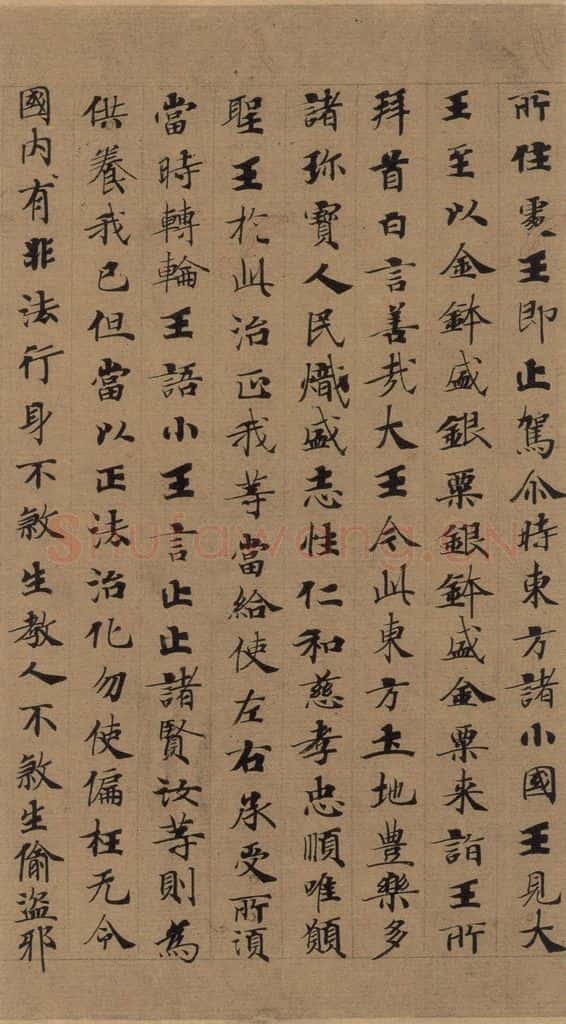 所住處王即止駕尒時東方諸小國王見大
王至以金鉢盛銀粟銀鉢盛金粟来詣王所
拜首白言善哉大王今此東方土地豊樂多
諸珎寳人民熾盛志性仁和慈孝忠順唯願
聖王於此治正我等當給使左右承受所湏
當時轉輪王語小王言止止諸賢汝等則為
供養我已但當以正法治化勿使偏枉无令
國内有非法行身不煞生教人不煞生偷盗邪
Shufawang.CN